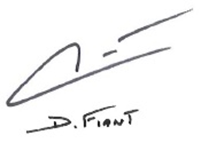 D. FIANT